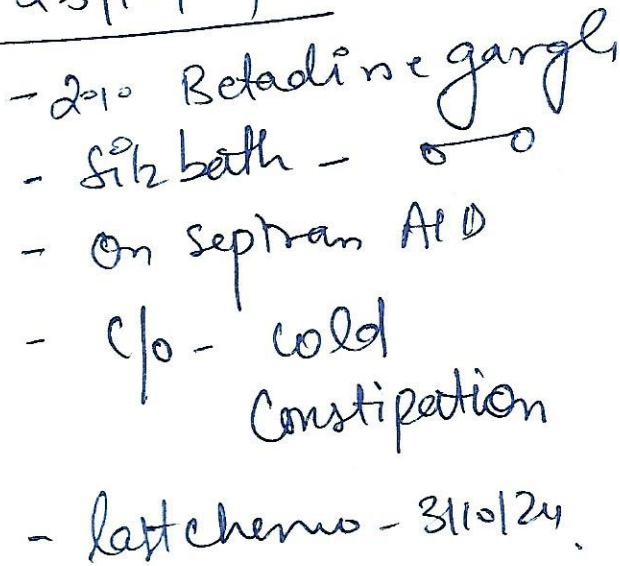 - 2% Betadine gargle
- Sitz bath -
- On Septran A/D
- C/o - cold
Constipation
- last chemo - 3/10/24.